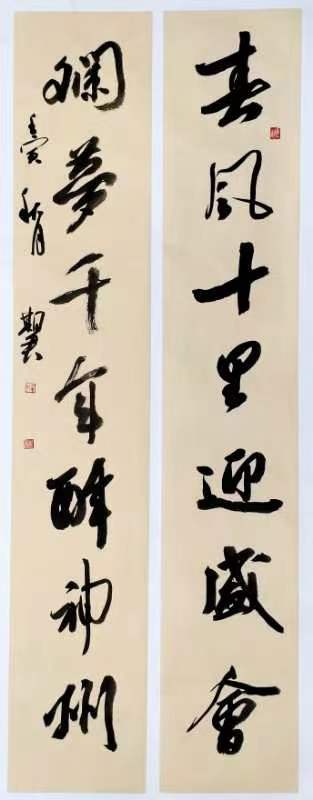 春風十里迎盛會
夢千年醉神州
壬寅 秋月